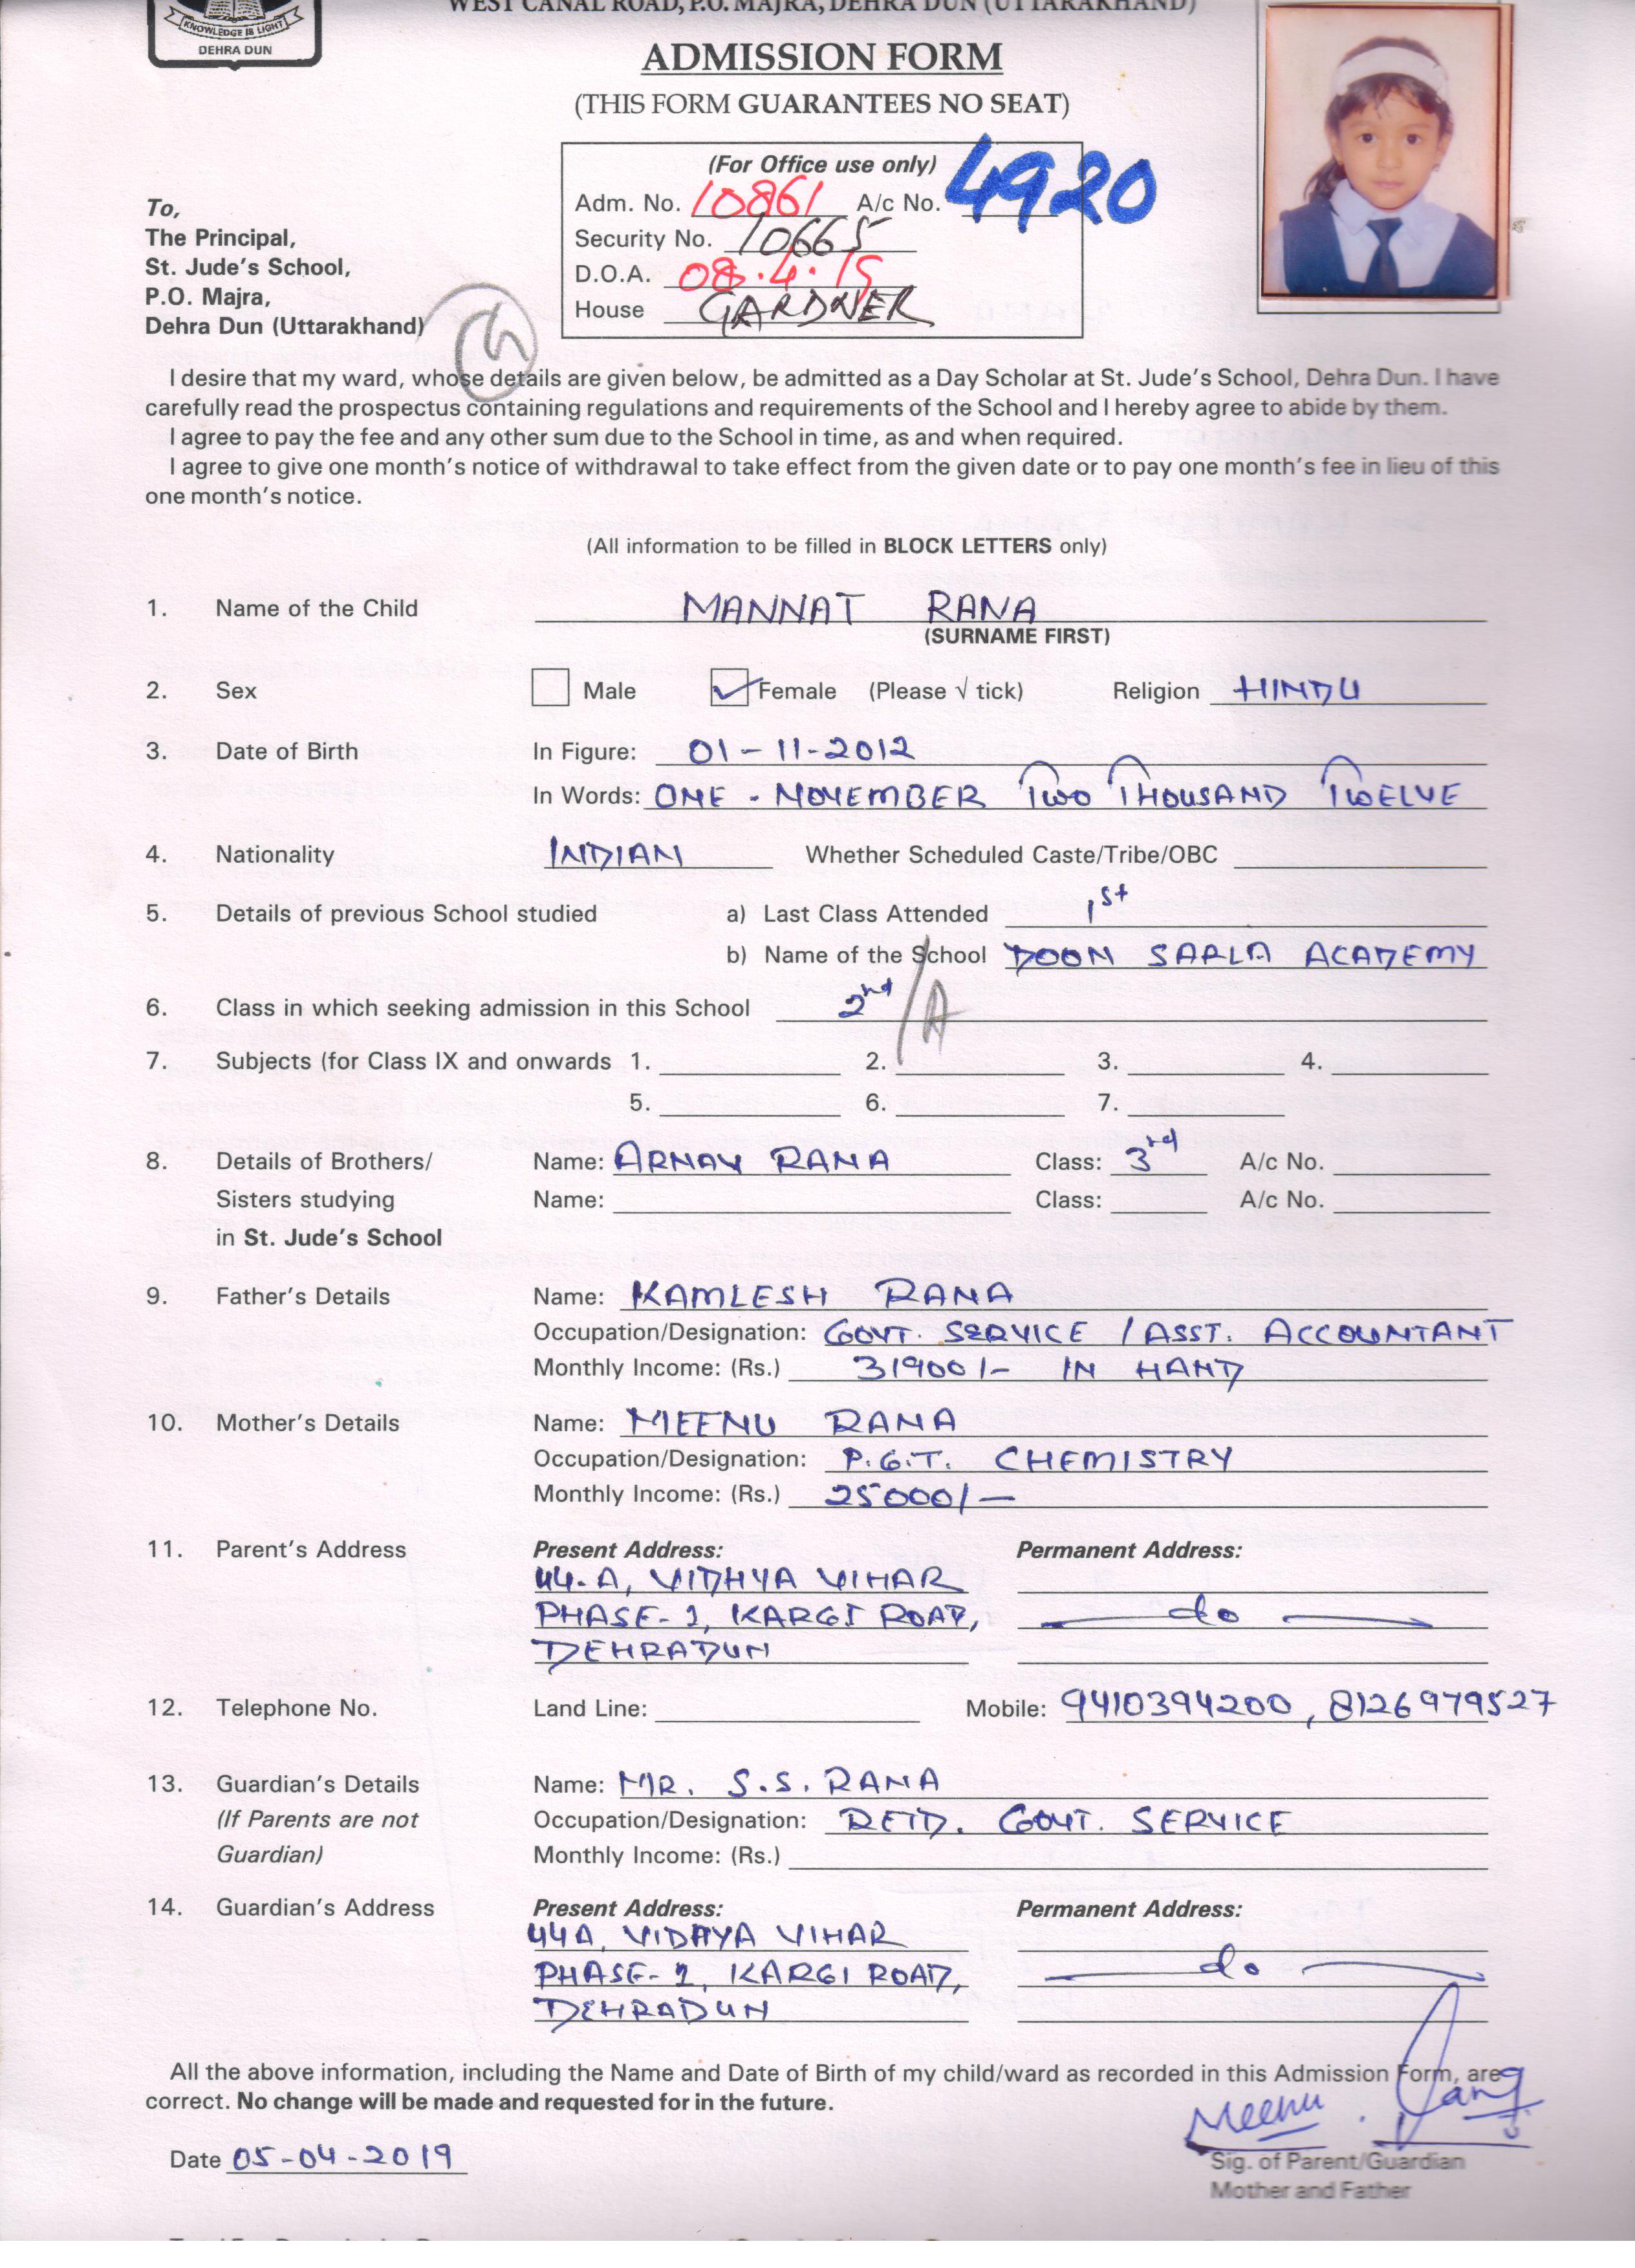 WEST CANAL ROAD, P.O. MAJRA, DEHRA DUN (UTTARAKHAND)
KNOWLEDGE IS LIGHT
DEHRA DUN
ADMISSION FORM
(THIS FORM GUARANTEES NO SEAT)
(For Office use only)
Adm. No. 10861 A/c No. 4920
Security No. 10665
D.O.A. 08.4.19
House GARDNER
To,
The Principal,
St. Jude's School,
P.O. Majra,
Dehra Dun (Uttarakhand)
I desire that my ward, whose details are given below, be admitted as a Day Scholar at St. Jude's School, Dehra Dun. I have
carefully read the prospectus containing regulations and requirements of the School and I hereby agree to abide by them.
I agree to pay the fee and any other sum due to the School in time, as and when required.
I agree to give one month's notice of withdrawal to take effect from the given date or to pay one month's fee in lieu of this
one month's notice.
(All information to be filled in BLOCK LETTERS only)
1. Name of the Child MANNAT RANA
(SURNAME FIRST)
2. Sex Male ✓ Female (Please √ tick) Religion HINDU
3. Date of Birth In Figure: 01-11-2012
In Words: ONE - NOVEMBER TWO THOUSAND TWELVE
4. Nationality INDIAN Whether Scheduled Caste/Tribe/OBC
5. Details of previous School studied a) Last Class Attended 1st
b) Name of the School DOON SARLA ACADEMY
6. Class in which seeking admission in this School 2nd /A
7. Subjects (for Class IX and onwards 1. 2. 3. 4.
5. 6. 7.
8. Details of Brothers/ Name: ARNAV RANA Class: 3rd A/c No.
Sisters studying Name: Class: A/c No.
in St. Jude's School
9. Father's Details Name: KAMLESH RANA
Occupation/Designation: GOVT. SERVICE / ASST. ACCOUNTANT
Monthly Income: (Rs.) 31900/- IN HAND
10. Mother's Details Name: MEENU RANA
Occupation/Designation: P.G.T. CHEMISTRY
Monthly Income: (Rs.) 25000/-
11. Parent's Address Present Address: Permanent Address:
44-A, VIDHYA VIHAR
PHASE-1, KARGI ROAD, do
DEHRADUN
12. Telephone No. Land Line: Mobile: 9410394200, 8126979527
13. Guardian's Details Name: MR. S.S. RANA
(If Parents are not Occupation/Designation: RETD. GOVT. SERVICE
Guardian) Monthly Income: (Rs.)
14. Guardian's Address Present Address: Permanent Address:
44A, VIDHYA VIHAR
PHASE-1, KARGI ROAD, do
DEHRADUN
All the above information, including the Name and Date of Birth of my child/ward as recorded in this Admission Form, are
correct. No change will be made and requested for in the future.
Meenu
Date 05-04-2019
Sig. of Parent/Guardian
Mother and Father